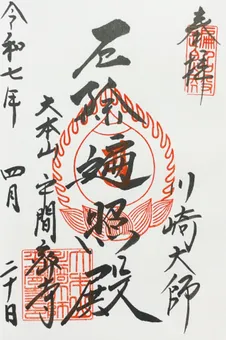 奉拝
川崎大師
厄除遍照殿
大本山平間教寺
令和七年
四月
二十日